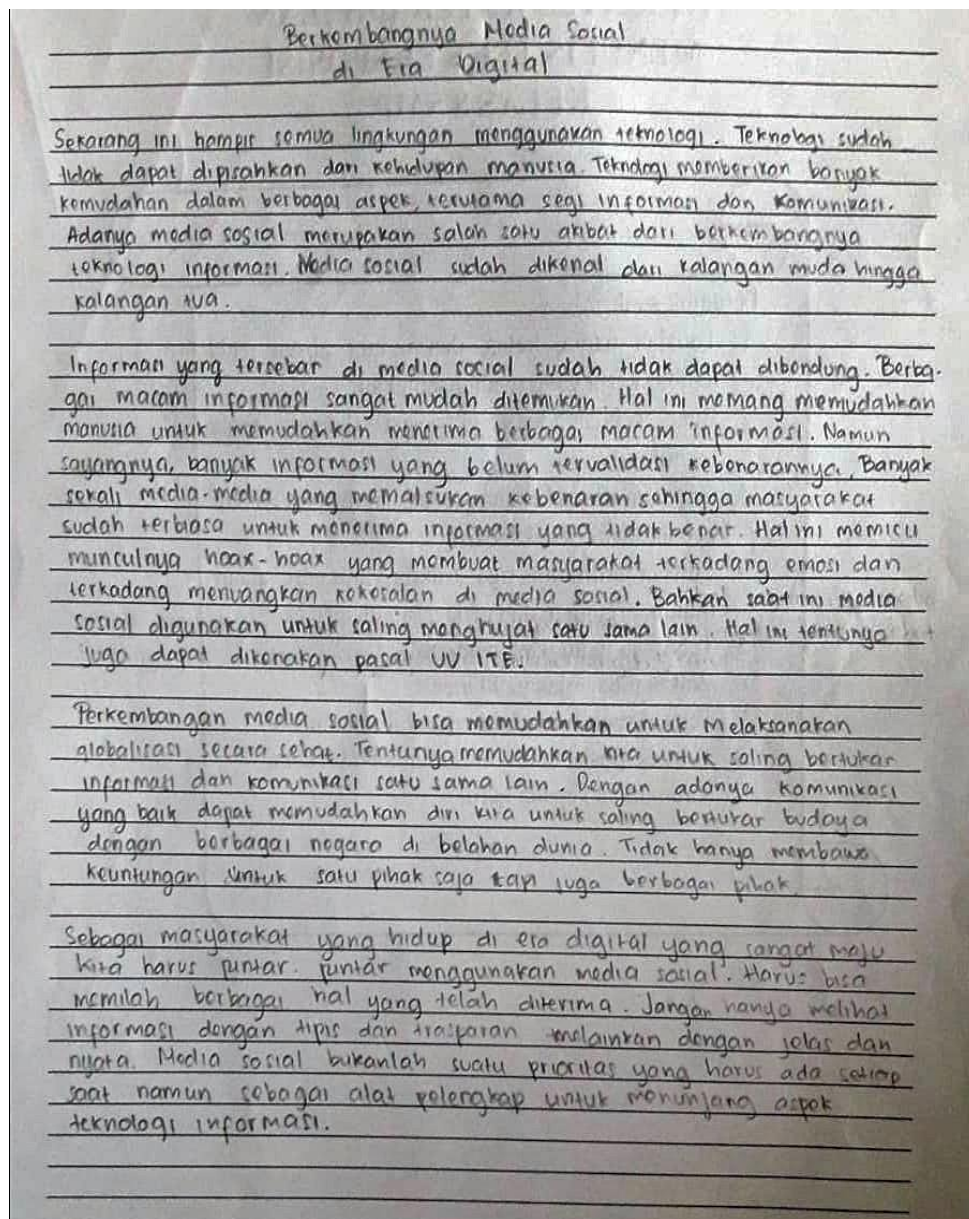 Berkembangnya Media Sosial
di Era Digital
Sekarang ini hampir semua lingkungan menggunakan teknologi. Teknologi sudah
tidak dapat dipisahkan dari kehidupan manusia. Teknologi memberikan banyak
kemudahan dalam berbagai aspek, terutama segi informasi dan komunikasi.
Adanya media sosial merupakan salah satu akibat dari berkembangnya
teknologi informasi. Media sosial sudah dikenal dari kalangan muda hingga
kalangan tua.
Informasi yang tersebar di media social sudah tidak dapat dibendung. Berba-
gai macam informasi sangat mudah ditemukan. Hal ini memang memudahkan
manusia untuk memudahkan menerima berbagai macam informasi. Namun
sayangnya, banyak informasi yang belum tervalidasi kebenarannya. Banyak
sekali media-media yang memalsukan kebenaran sehingga masyarakat
sudah terbiasa untuk menerima informasi yang tidak benar. Hal ini memicu
munculnya hoax-hoax yang membuat masyarakat terkadang emosi dan
terkadang menuangkan kekesalan di media sosial. Bahkan saat ini media
sosial digunakan untuk saling menghujat satu sama lain. Hal ini tentunya
juga dapat dikenakan pasal UU ITE.
Perkembangan media sosial bisa memudahkan untuk melaksanakan
globalisasi secara sehat. Tentunya memudahkan kita untuk saling bertukar
informasi dan komunikasi satu sama lain. Dengan adanya komunikasi
yang baik dapat memudahkan diri kita untuk saling bertukar budaya
dengan berbagai negara di belahan dunia. Tidak hanya membawa
keuntungan untuk satu pihak saja tapi juga berbagai pihak.
Sebagai masyarakat yang hidup di era digital yang sangat maju
kita harus pintar. pintar menggunakan media sosial. Harus bisa
memilah berbagai hal yang telah diterima. Jangan hanya melihat
informasi dengan tipis dan trasparan melainkan dengan jelas dan
nyata. Media sosial bukanlah suatu prioritas yang harus ada setiap
saat namun sebagai alat pelengkap untuk menunjang aspek
teknologi informasi.